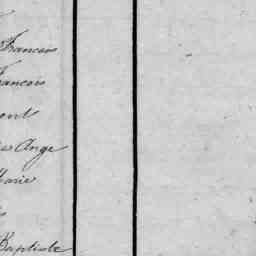 Francois
Francois
ont
Ange
Marie
Baptiste